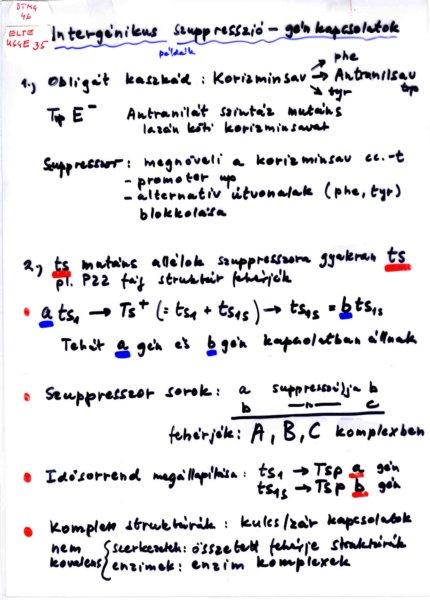 BTMG
46
ELTE
UGGE 35
Intergénikus szuppresszió – gén kapcsolatok
példák
1.) Obligát kaszkád : Korizminsav → phe
→ Antranilsav
trp
→ tyr
Trp E⁻ Antranilát szintáz mutáns
lazán köti korizminsavat
Suppressor: megnöveli a korizminsav cc.-t
- promoter up
- alternatív útvonalak (phe, tyr)
blokkolása
2.) ts mutáns allélok szuppresszora gyakran ts
pl. P22 fág struktúr fehérjék
• a ts₁ → Ts⁺ (= ts₁ + ts₁s) → ts₁s = b ts₁s
Tehát a gén és b gén kapcsolatban állnak
• Szuppresszor sorok: a suppresszálja b
b —"— c
fehérjék: A, B, C komplexben
• Idősorrend megállapítása: ts₁ → Tsp a gén
ts₁s → Tsp b gén
• Komplex struktúrák : kulcs/zár kapcsolatok
nem szerkezetek: összetett fehérje struktúrák
kovalens enzimek: enzim komplexek